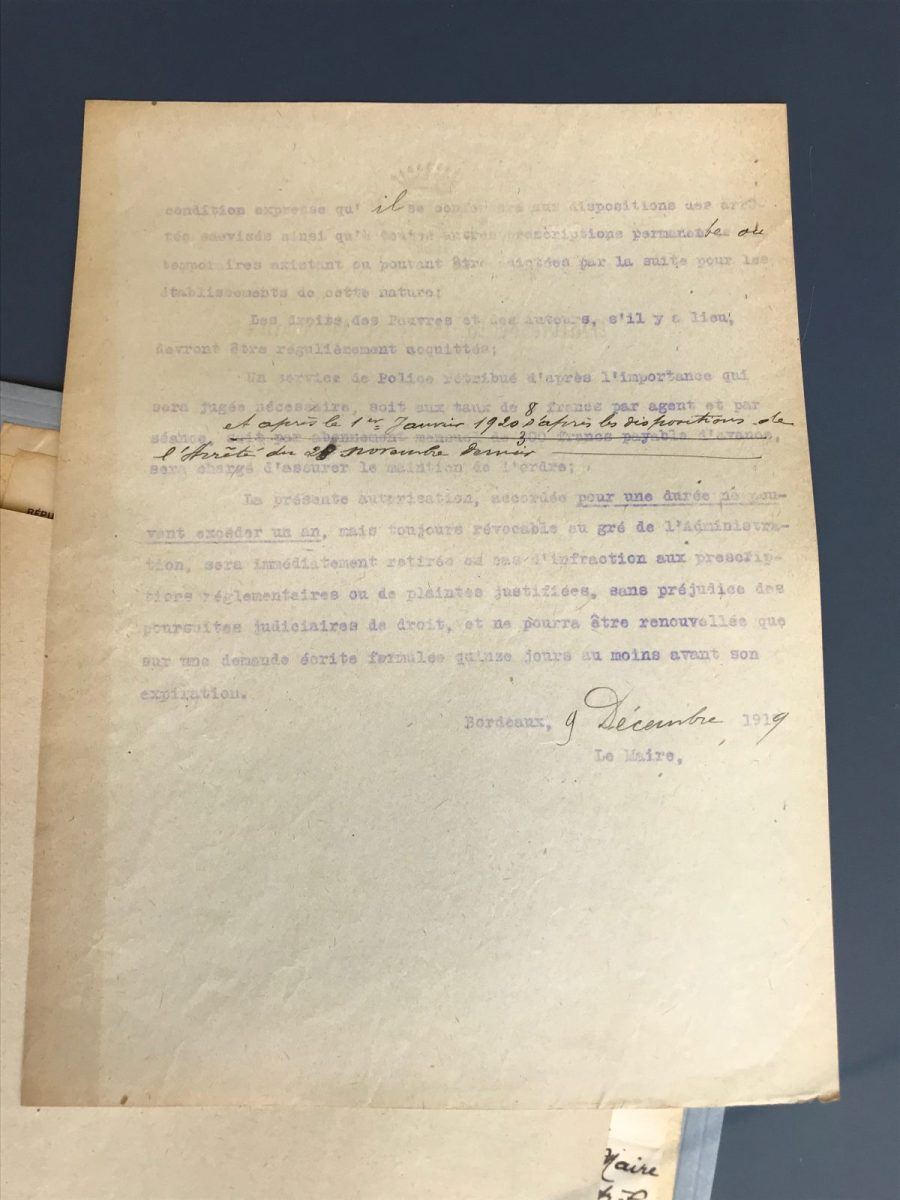 condition expresse qu' il se conformera aux dispositions des arrê-
tés susvisés ainsi qu'à toutes autres prescriptions permanentes ou
temporaires existant ou pouvant être édictées par la suite pour les
établissements de cette nature;
Les droits des Pauvres et des Auteurs, s'il y a lieu,
devront être régulièrement acquittés;
Un service de Police rétribué d'après l'importance qui
sera jugée nécessaire, soit aux taux de 8 francs par agent et par
et après le 1er Janvier 1920 d'après les dispositions de
séance, soit par abonnement mensuel de 300 francs payable d'avance,
l'Arrêté du 28 novembre dernier
sera chargé d'assurer le maintien de l'ordre;
La présente autorisation, accordée pour une durée ne pou-
vant excéder un an, mais toujours révocable au gré de l'Administra-
tion, sera immédiatement retirée en cas d'infraction aux prescrip-
tions réglementaires ou de plaintes justifiées, sans préjudice des
poursuites judiciaires de droit, et ne pourra être renouvellée que
sur une demande écrite formulée quinze jours au moins avant son
expiration.
Bordeaux, 9 Décembre 1919
Le Maire,
RÉPU
Maire